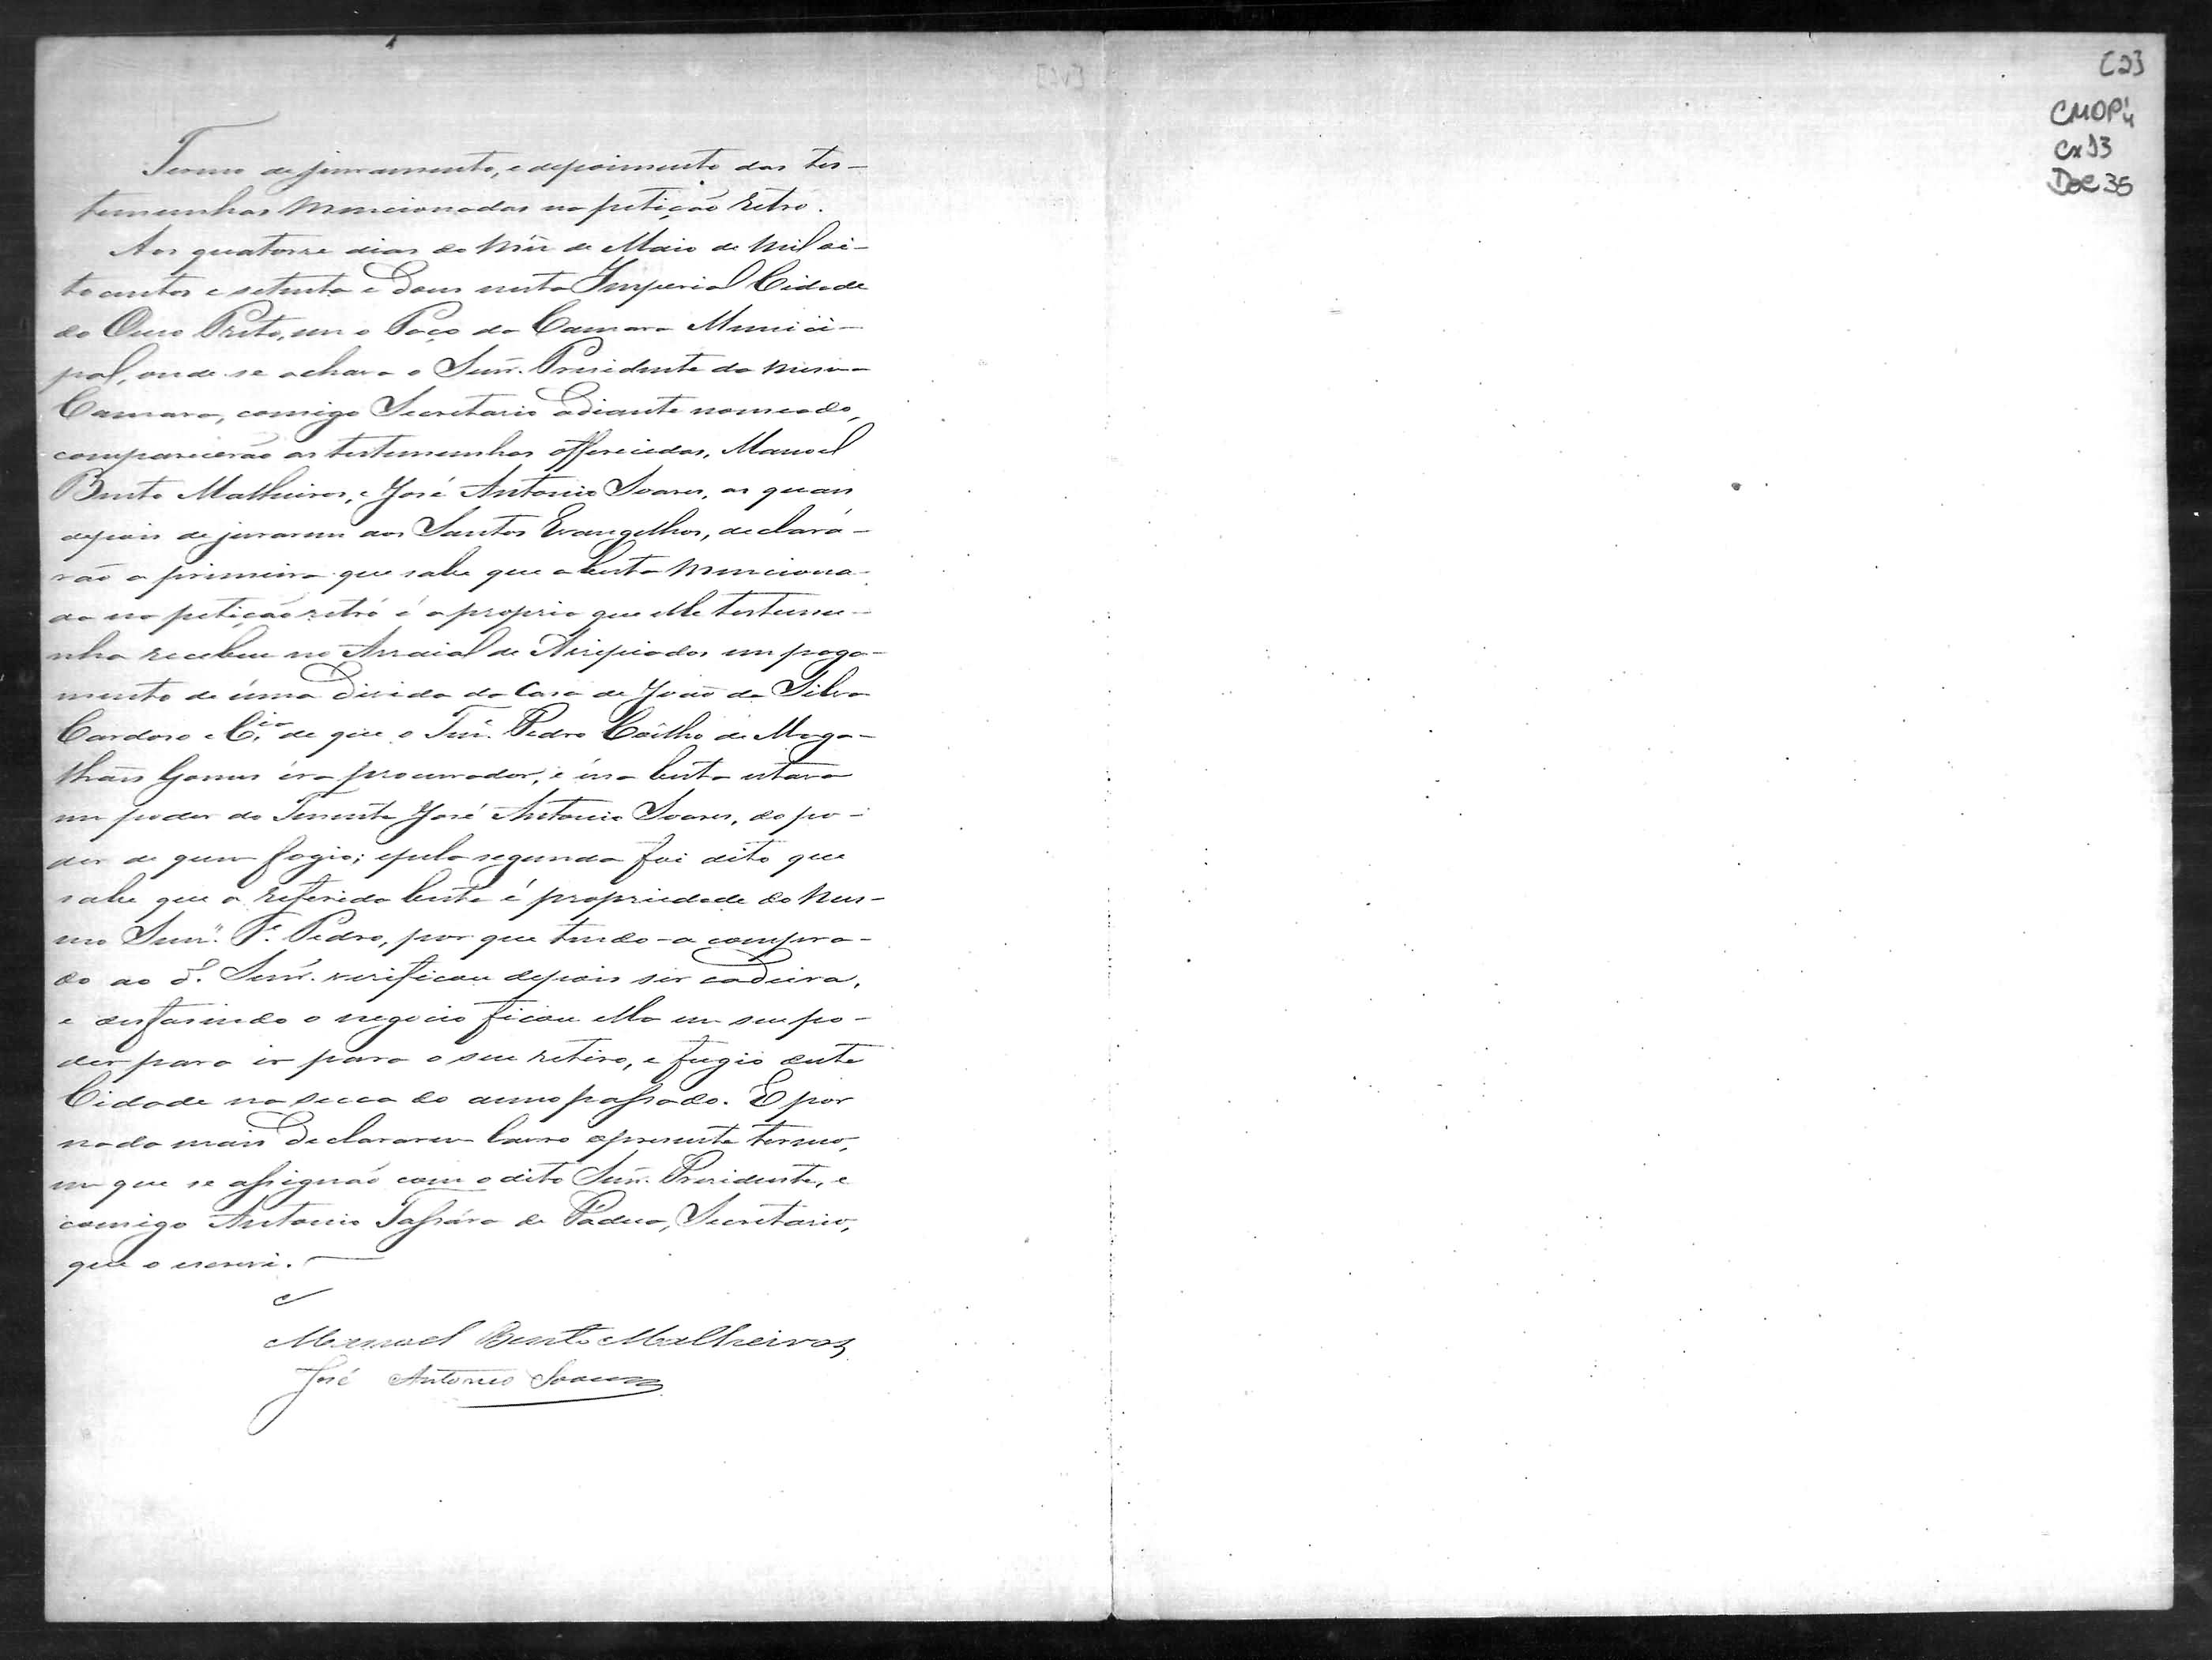 [2]
CMOP 4
Cx 93
Doc 35
Termo de juramento, e depoimento das tes-
temunhas mencionadas na petição retro.
Aos quatorze dias do mez de Maio de mil oi-
to centos e setenta e dous nesta Imperial Cidade
do Ouro Preto, em o Paço da Camara Munici-
pal, onde se achava o Senr. Presidente da mesma
Camara, comigo Secretario adiante nomeado,
comparecerão as testemunhas offerecidas, Manoel
Bento Malheiros, e José Antonio Soares, as quaes
depois de jurarem aos Santos Evangelhos, declará-
rão a primeira que sabe que a besta menciona-
da na petição retró é a propria que elle testemu-
nha recebeu no Arraial de Arripiados em paga-
mento de úma divida da Casa de João da Silva
Cardoso e C.ia de que o Ten. Pedro Coêlho de Maga-
lhães Gomes éra procurador, e éssa besta estava
em poder do Tenente José Antonio Soares, do po-
der de quem fogio; e pela segunda foi dito que
sabe que a referida besta é propriedade do mes-
mo Senr. Te. Pedro, por que tendo-a compra-
do ao d.º Senr. verificou depois ser cadeira,
e desfasendo o negocio ficou ella em seu po-
der para ir para o seu retiro, e fugio desta
Cidade na secca do anno passado. E por
nada mais declararem lavro o presente termo,
em que se assignão com o dito Senr. Presidente, e
comigo Antonio Tassára de Pádua, Secretario,
que o escrevi.
Manoel Bento Malheiros
José Antonio Soares